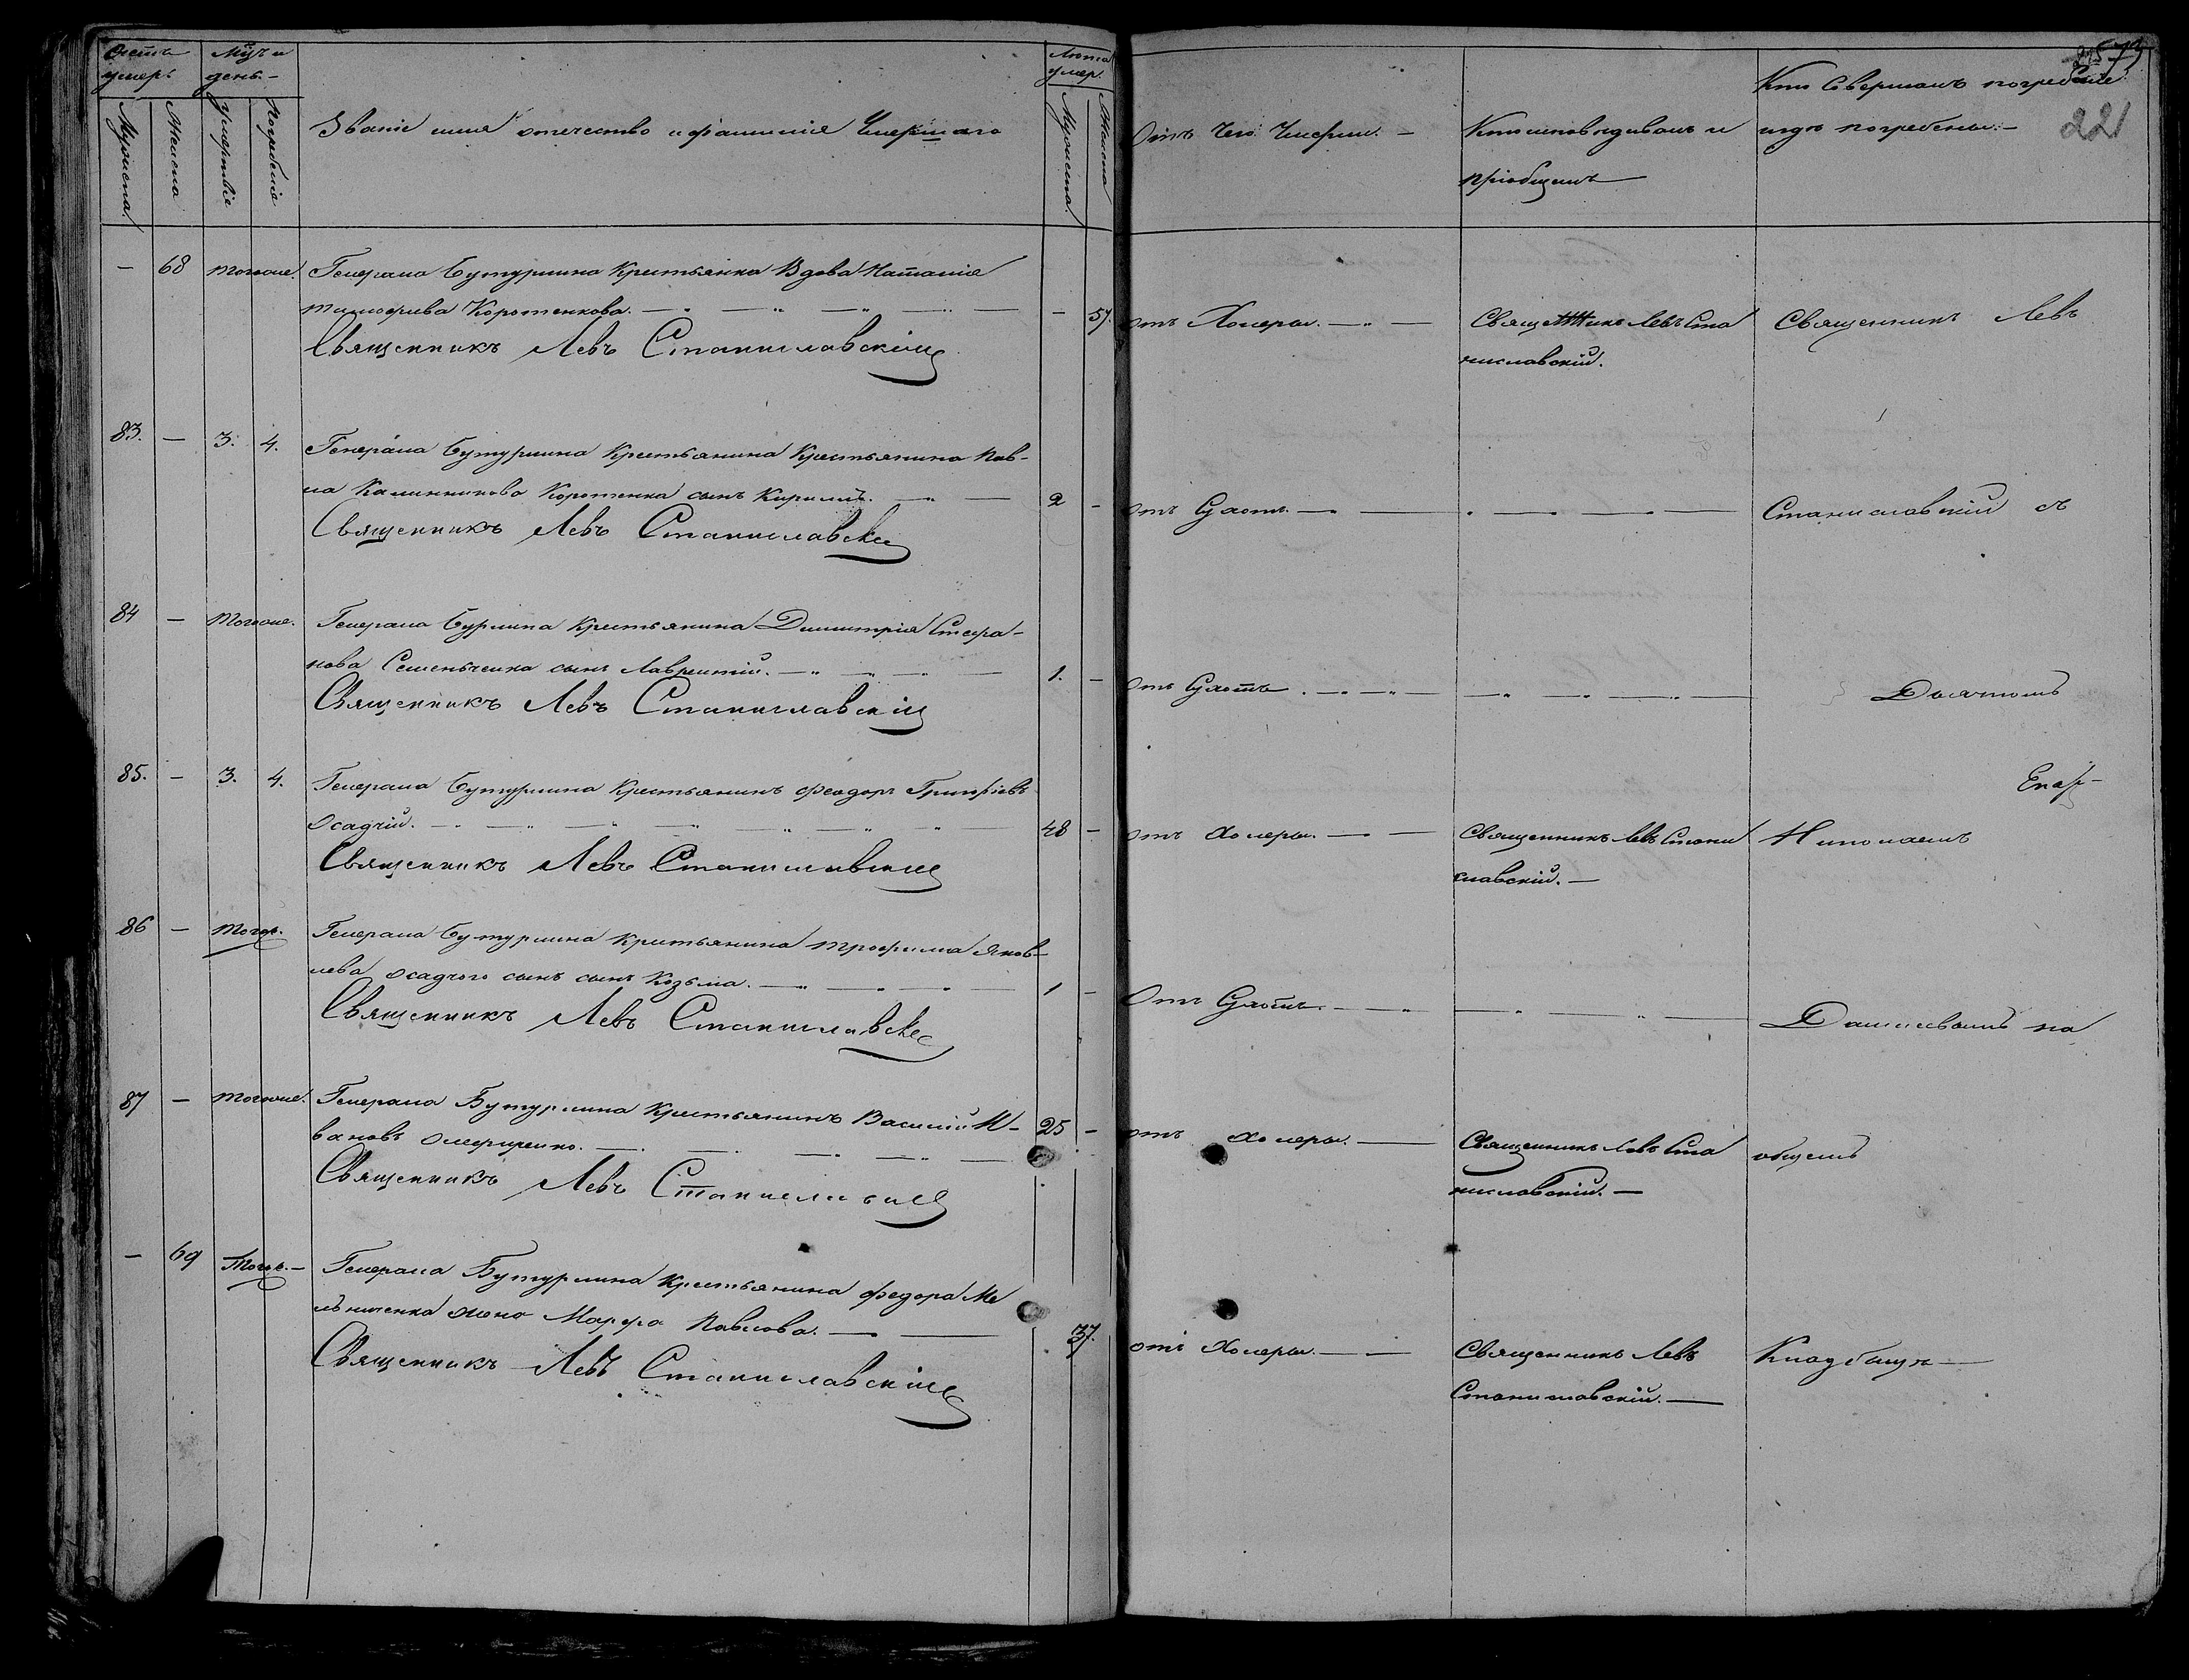 Счетъ умер.
Мѣц. и день.
Мужеска.
Женска
Умертвіе
Погребеніе
Званіе имя отчество и фамилія Умершаго
Лѣта умер.
Мужеска.
Женска
Отъ Чего Умерли. —
Кто исповѣдивалъ и
пріобщалъ
Кто Совершалъ погребеніе
и гдѣ погребены. —
573
22
— 68 Тогоже. Генерала Бутурлина Крестьянка Вдова Наталія
Тимофѣева Коротенкова. — 57.
Священникъ Левъ Станиславскій
отъ Холеры. — Священникъ Левъ Ста
ниславскій.
Священникъ Левъ
83. — 3. 4. Генерала Бутурлина Крестьянина Крестьянина Пав-
ла Калинникова Коротенка сынъ Кирилъ. — 2 —
Священникъ Левъ Станиславскій
отъ —
Станиславскій съ
84 — Тогоже. Генерала Бурлина Крестьянина Димитрія Стефа-
нова Семеньченка сынъ Лаврентій. — 1. —
Священникъ Левъ Станиславскій
Отъ —
Дьячкомъ
85. — 3. 4. Генерала Бутурлина Крестьянинъ Феодоръ Григоріевъ
Осадчій. — 48 —
Священникъ Левъ Станиславскій
отъ Холеры. — Священникъ Левъ Стани
славскій. —
Николаемъ
86 — Тогож. Генерала Бутурлина Крестьянина Трофима Яков-
лева Осадчого сынъ сынъ Козьма. — 1 —
Священникъ Левъ Станиславскій
Отъ —
на
87 — Тогоже. Генерала Бутурлина Крестьянинъ Василій И-
вановъ — 25 —
Священникъ Левъ Станиславскій
отъ Холеры. — Священникъ Левъ Ста
ниславскій. —
общемъ
— 69 Тогож. — Генерала Бутурлина Крестьянина Федора Ме
льниченка жена Марфа Павлова. — 37.
Священникъ Левъ Станиславскій
отъ Холеры. — Священникъ Левъ
Станиславскій. —
Кладбищѣ —